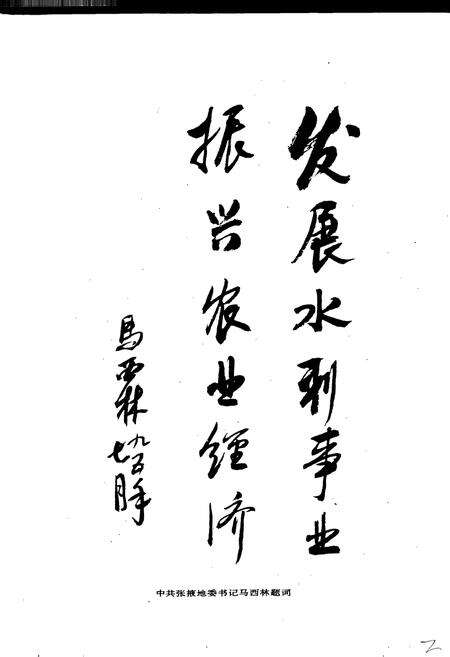 发展水利事业
振兴农业经济
馬西林
九五年
七月
中共张掖地委书记马西林题词